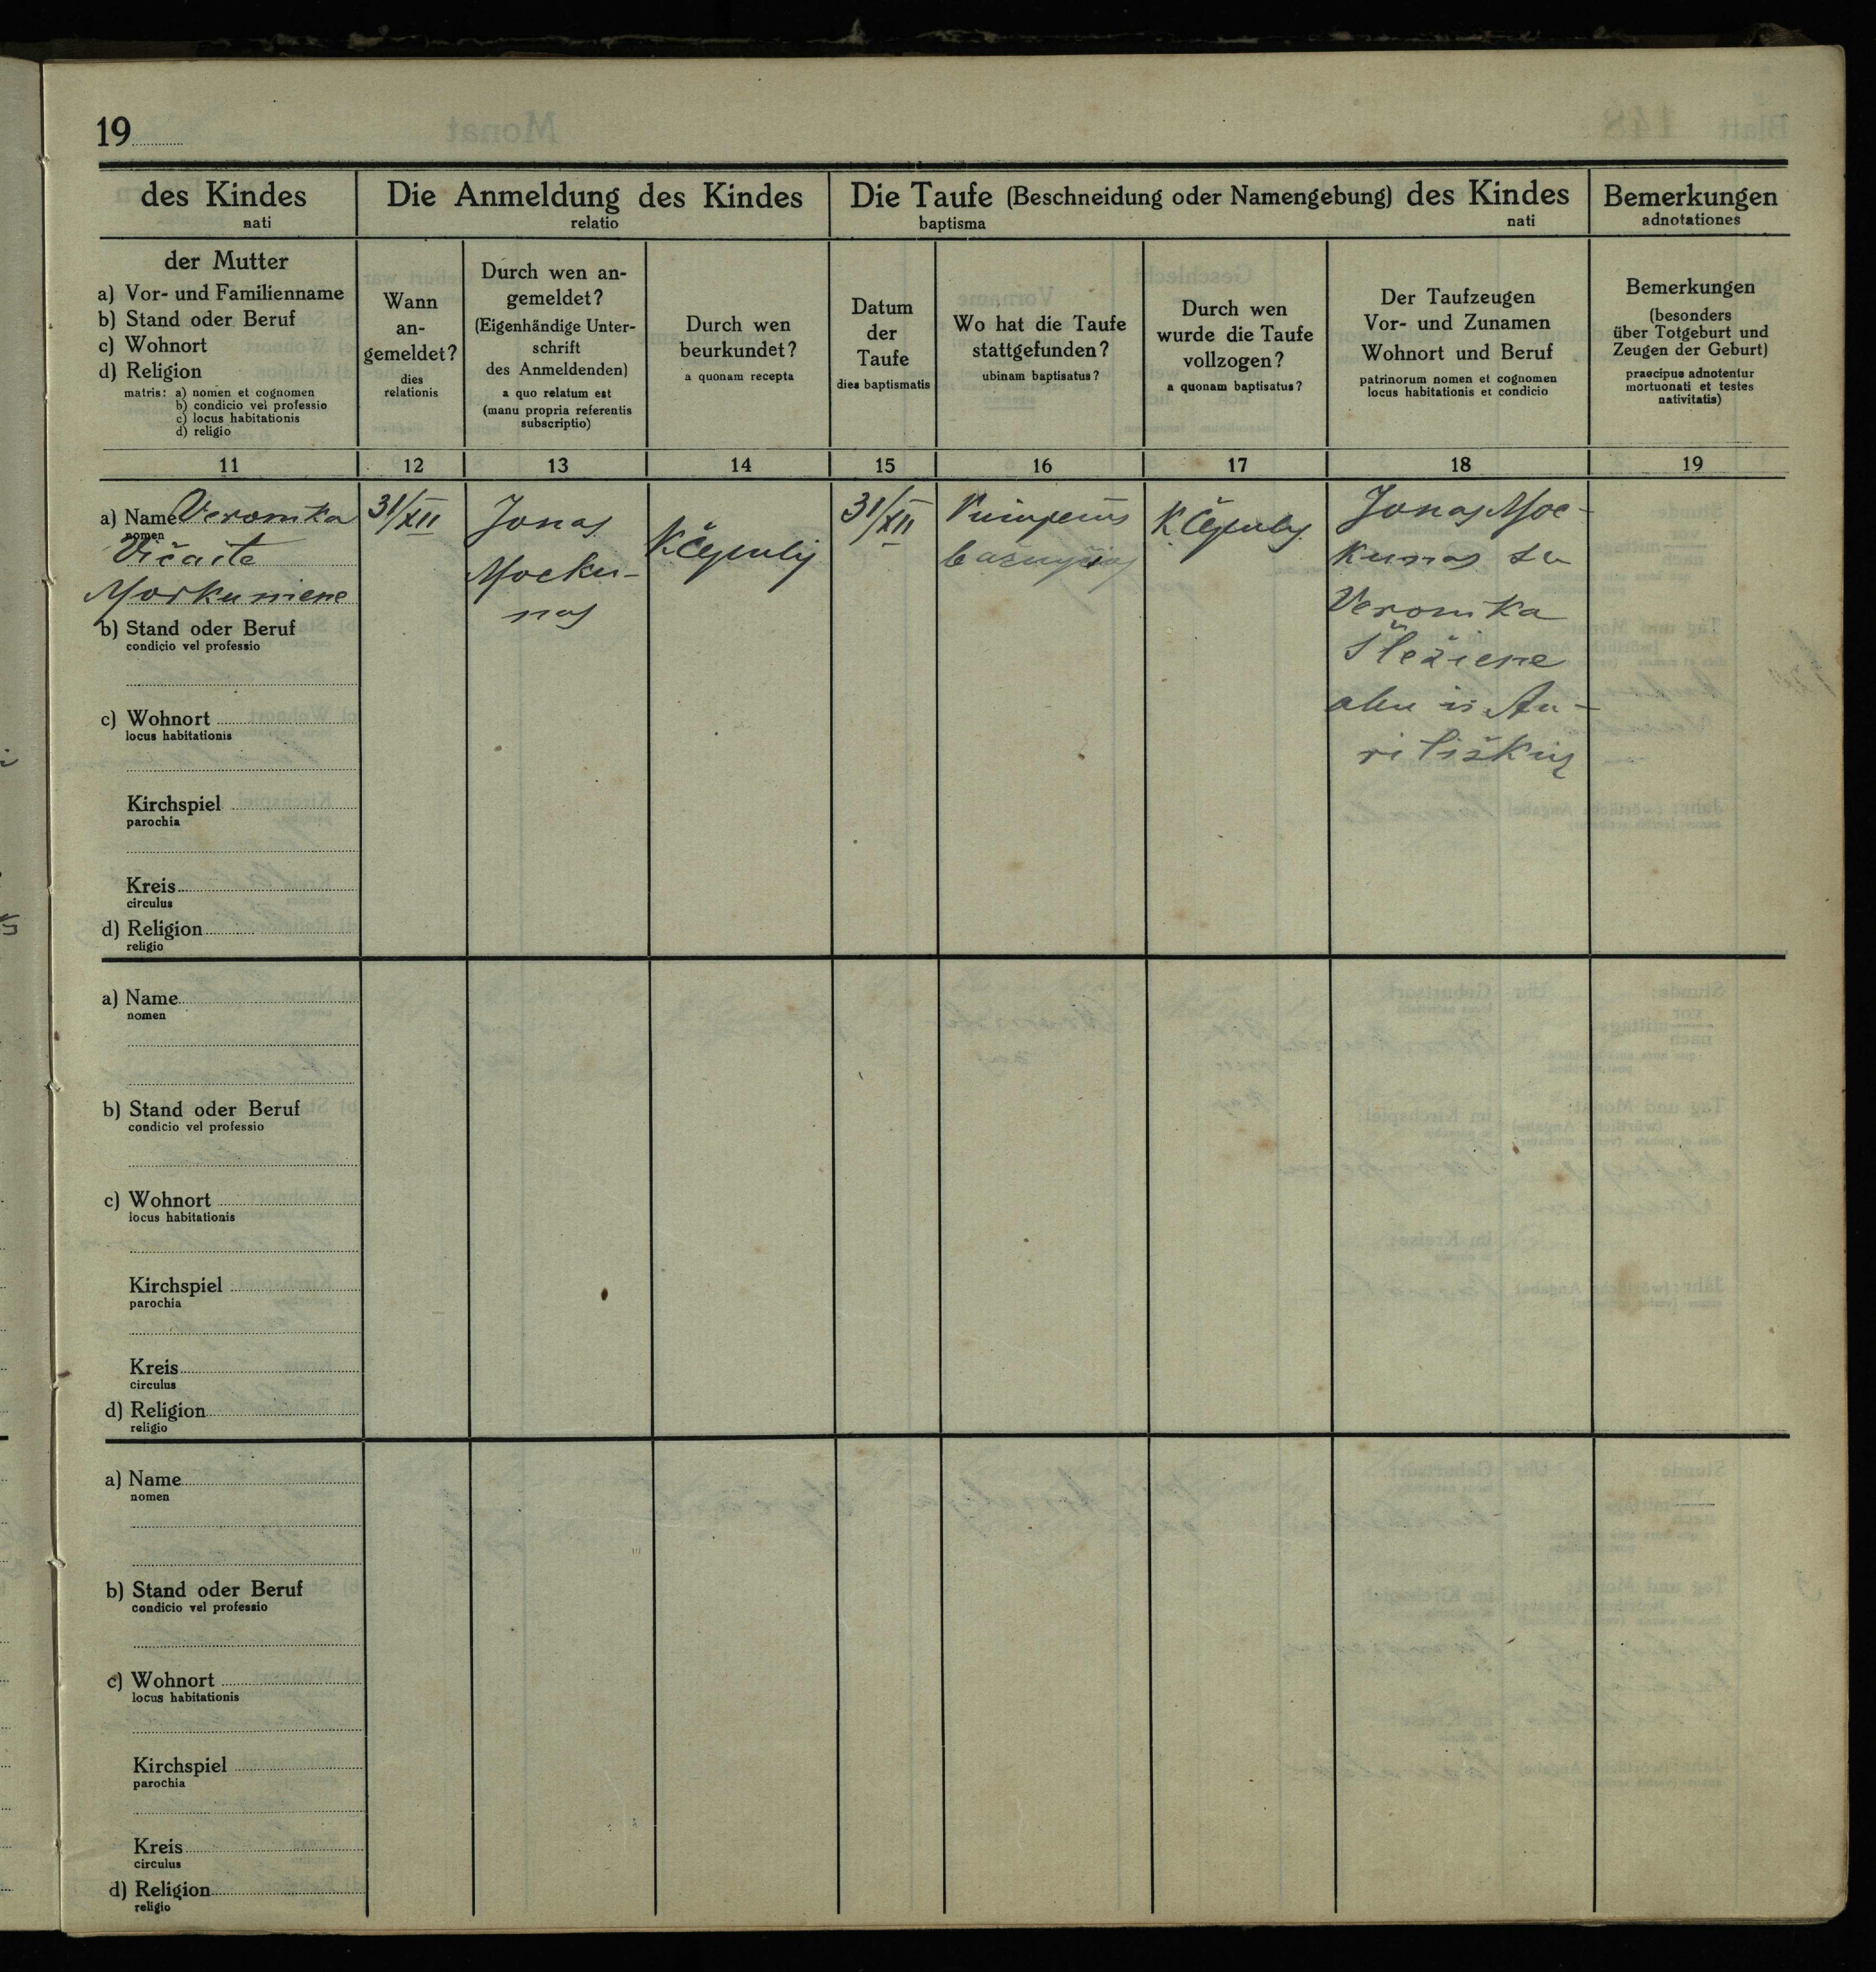 19
des Kindes
nati
Die Anmeldung des Kindes
relatio
Die Taufe (Beschneidung oder Namengebung) des Kindes
baptisma nati
Bemerkungen
adnotationes
der Mutter
a) Vor- und Familienname
b) Stand oder Beruf
c) Wohnort
d) Religion
matris: a) nomen et cognomen
b) condicio vel professio
c) locus habitationis
d) religio
Wann
an-
gemeldet?
dies
relationis
Durch wen an-
gemeldet?
(Eigenhändige Unter-
schrift
des Anmeldenden)
a quo relatum est
(manu propria referentis
subscriptio)
Durch wen
beurkundet?
a quonam recepta
Datum
der
Taufe
dies baptismatis
Wo hat die Taufe
stattgefunden?
ubinam baptisatus?
Durch wen
wurde die Taufe
vollzogen?
a quonam baptisatus?
Der Taufzeugen
Vor- und Zunamen
Wohnort und Beruf
patrinorum nomen et cognomen
locus habitationis et condicio
Bemerkungen
(besonders
über Totgeburt und
Zeugen der Geburt)
praecipue adnotentur
mortuonati et testes
nativitatis)
11 12 13 14 15 16 17 18 19
a) Name Veronika
nomen
Vičaite
Morkuniene
b) Stand oder Beruf
condicio vel professio
c) Wohnort
locus habitationis
Kirchspiel
parochia
Kreis
circulus
d) Religion
religio
31/XII
Jonas
Mocku-
nas
K Čepulis
31/XII
K Čepulis
Jonas Moc-
kunas su
Veronika
Šležiene
abu iš Au-
a) Name
nomen
b) Stand oder Beruf
condicio vel professio
c) Wohnort
locus habitationis
Kirchspiel
parochia
Kreis
circulus
d) Religion
religio
a) Name
nomen
b) Stand oder Beruf
condicio vel professio
c) Wohnort
locus habitationis
Kirchspiel
parochia
Kreis
circulus
d) Religion
religio